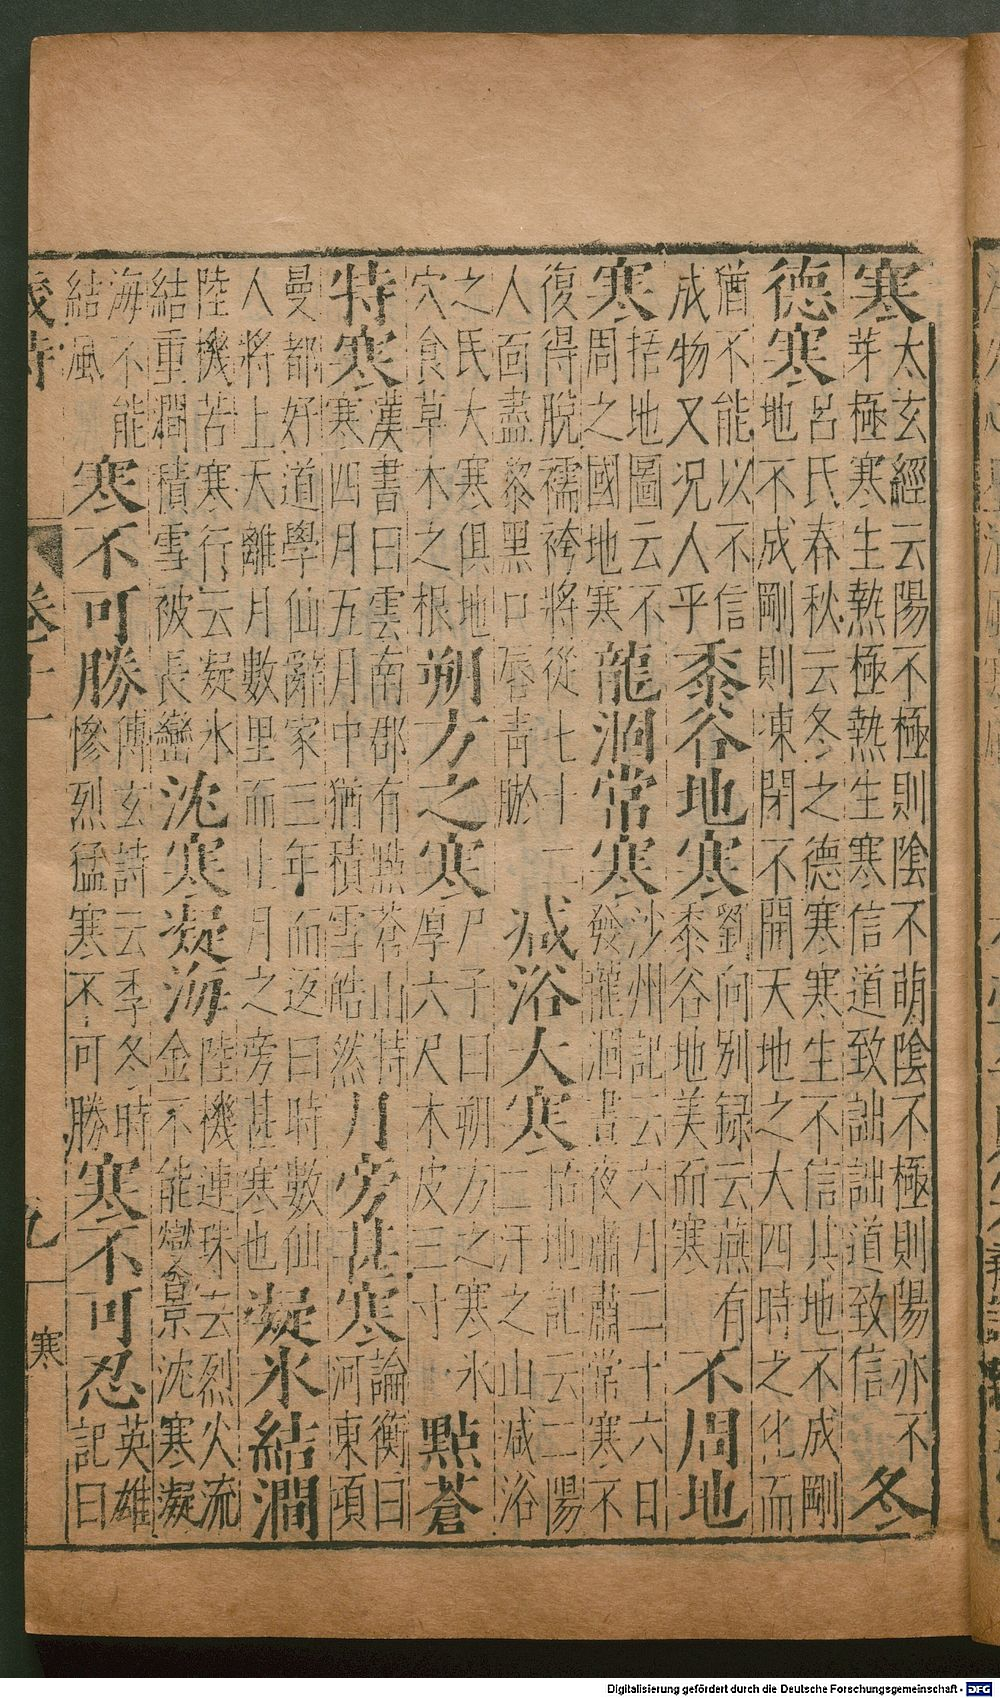 寒
太玄經云陽不極則陰不萌陰不極則陽亦不
芽極寒生熱極熱生寒信道致詘詘道致信
冬
德寒
呂氏春秋云冬之德寒寒生不信其地不成剛
地不成剛則凍閉不開天地之大四時之化而
猶不能以不信
成物又況人乎
黍谷地寒
劉向別録云燕有
黍谷地美而寒
不周地
寒
括地圖云不
周之國地寒
龍涸常寒
沙州記云六月二十六日
發龍涸晝夜肅肅常寒不
復得脫襦袴將從七十二
人面盡黎黑口唇青瘀
减浴大寒
括地記云二陽
二汗之山减浴
之氏大寒俱地
穴食草木之根
朔方之寒
尸子曰朔方之寒氷
厚六尺木皮三寸
點蒼
特寒
漢書曰雲南郡有點蒼山特
寒四月五月中猶積雪皓然
月旁甚寒
論衡曰
河東項
曼都好道學仙辭家三年而返曰時數仙
人將上天離月數里而止月之旁甚寒也
凝氷結澗
陸機苦寒行云凝氷
結重澗積雪被長巒
沈寒凝海
陸機連珠云烈火流
金不能變景沈寒凝
海不能
結風
寒不可勝
傅玄詩云季冬時
慘烈猛寒不可勝
寒不可忍
英雄
記曰
歲時
卷十一
九
寒
Digitalisierung gefördert durch die Deutsche Forschungsgemeinschaft - DFG